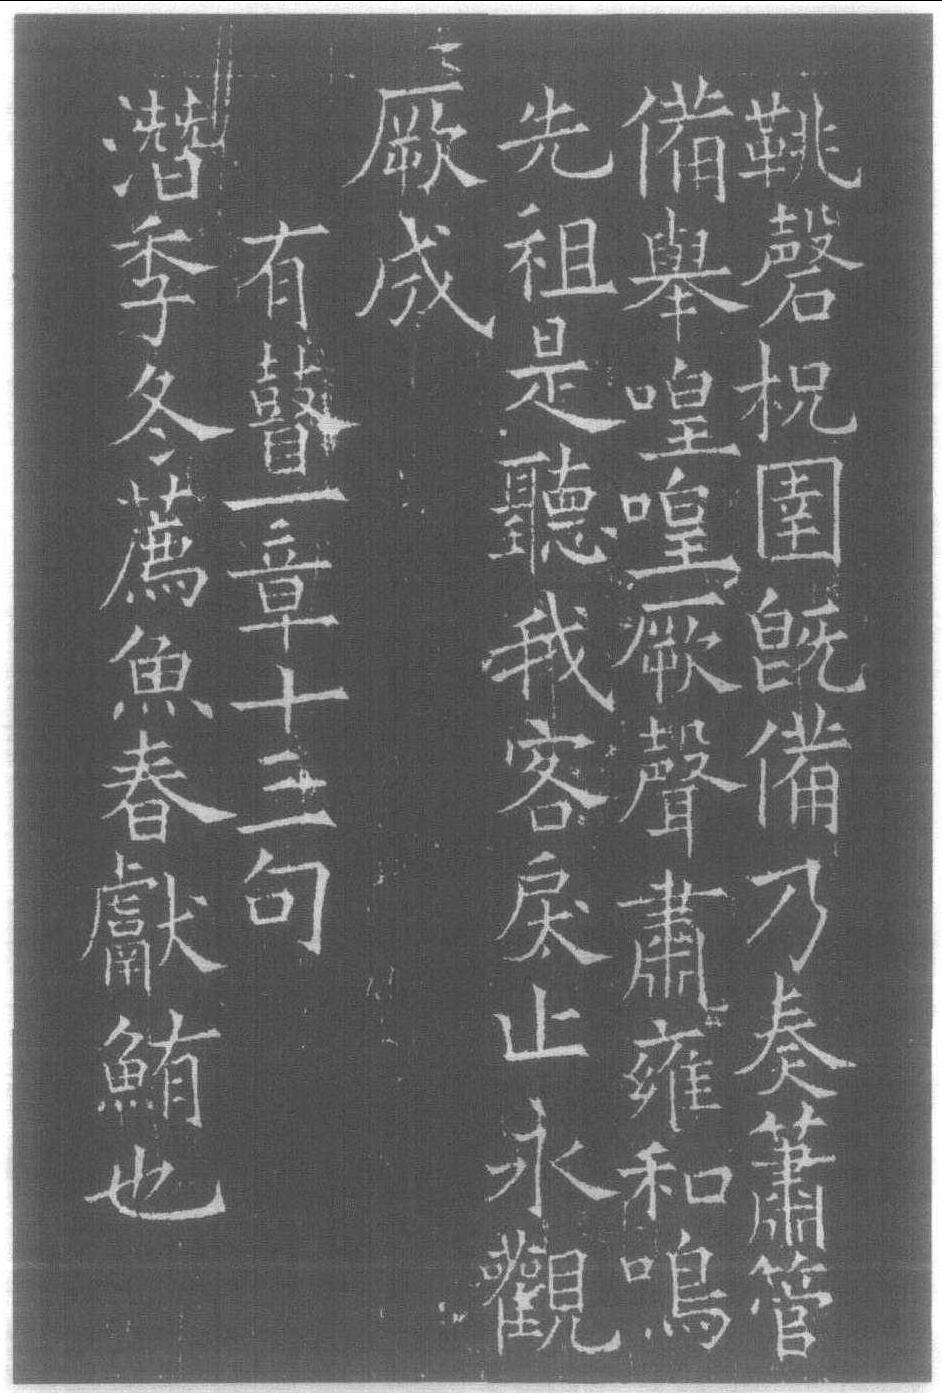 鞉磬柷圉既備乃奏簫管
備舉喤喤厥聲肅雍和鳴
先祖是聽我客戾止永觀
厥成
有瞽一章十三句
潛季冬薦魚春獻鮪也